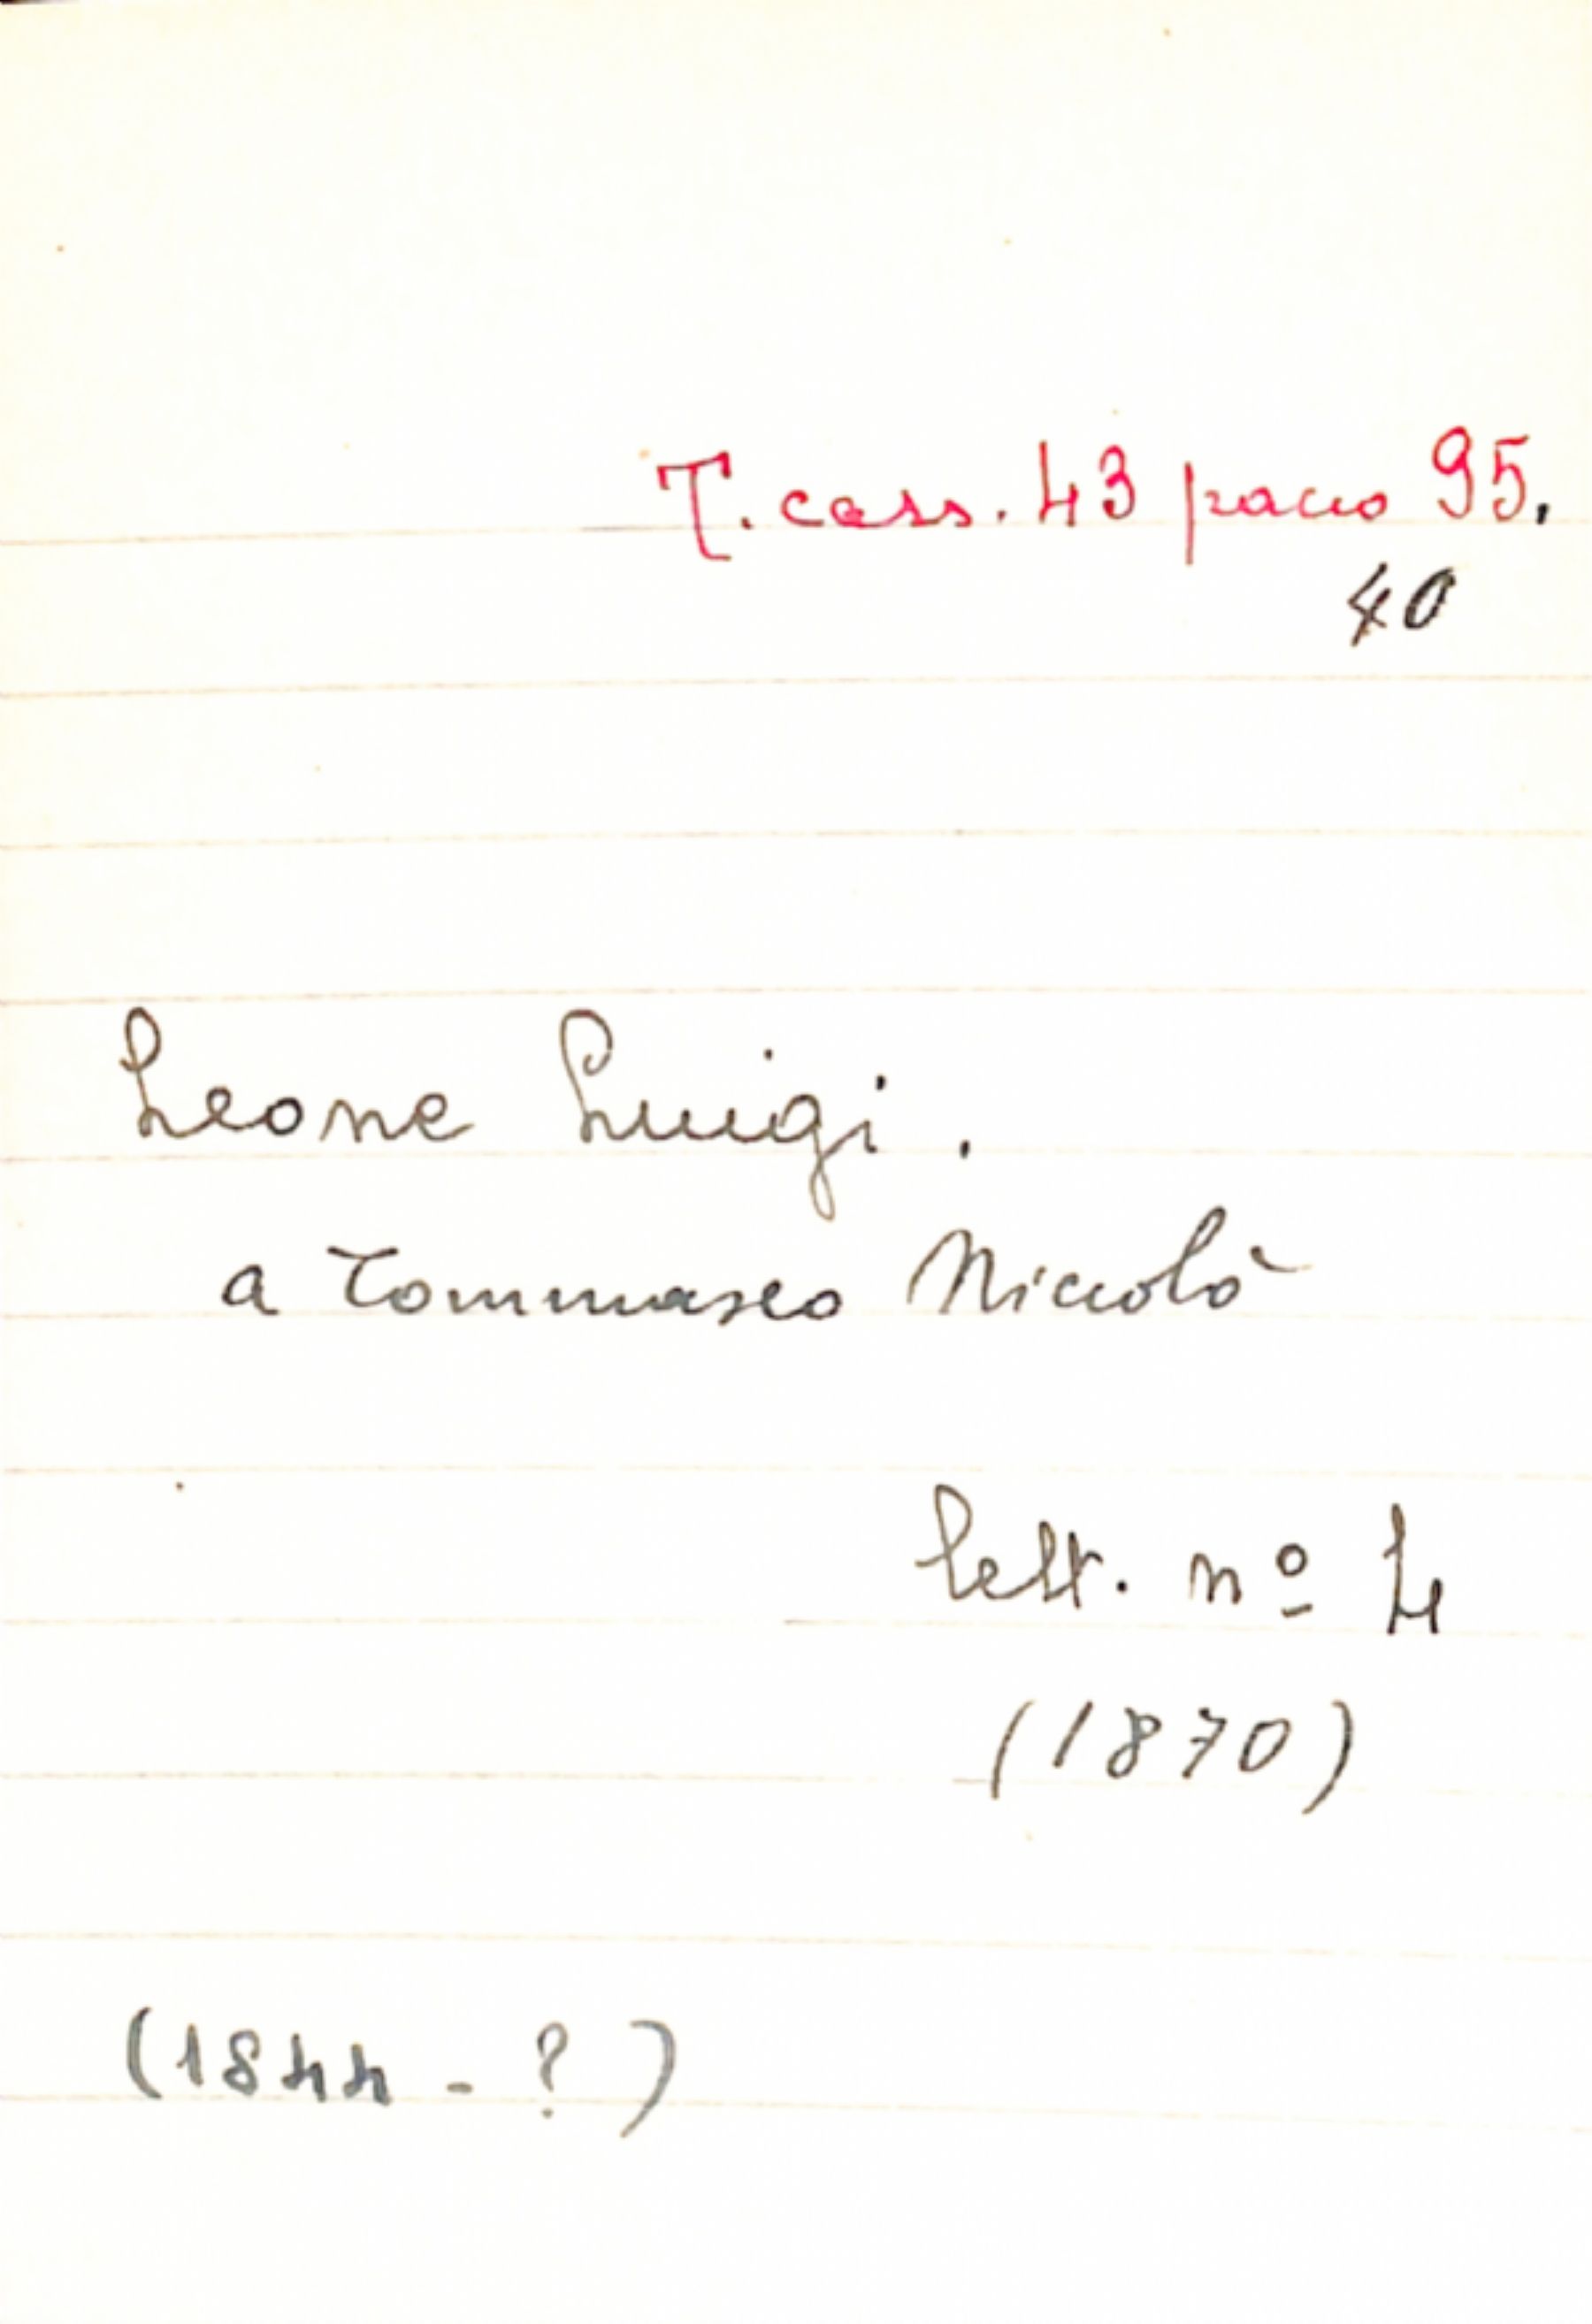 T. cass. 43 pacco 95.
40
Leone Luigi.
a Tommaseo Niccolò
lett. nº 4
(1870)
(1844 - ?)